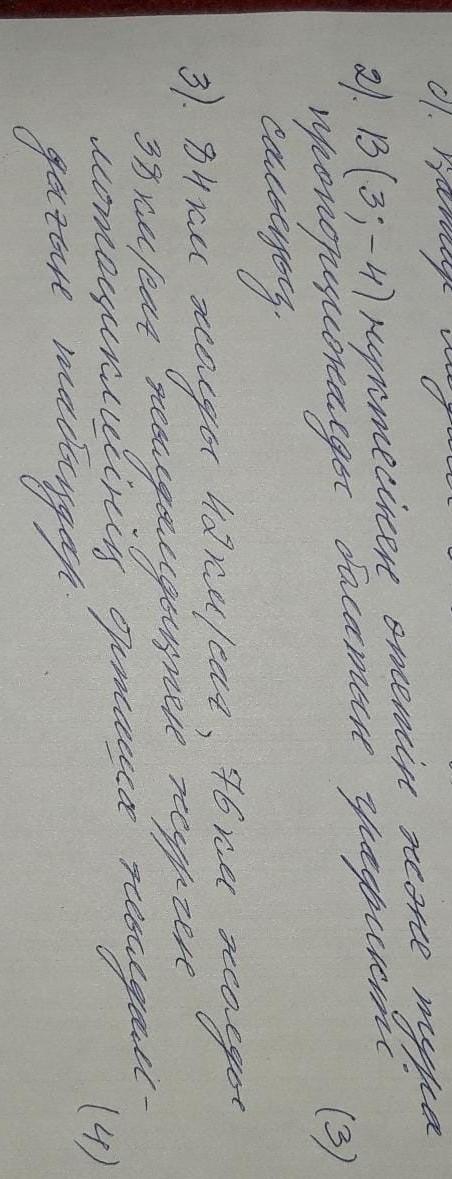 2). В(3;-4) нүктесінен өтетін және тура
пропорционалды болатын графикті
салыңыз. (3)
3). 84 км жолды 42 км/сағ, 76 км жолды
38 км/сағ жылдамдықпен жүрген
мотоциклшінің орташа жылдам-
дығын табыңдар. (4)